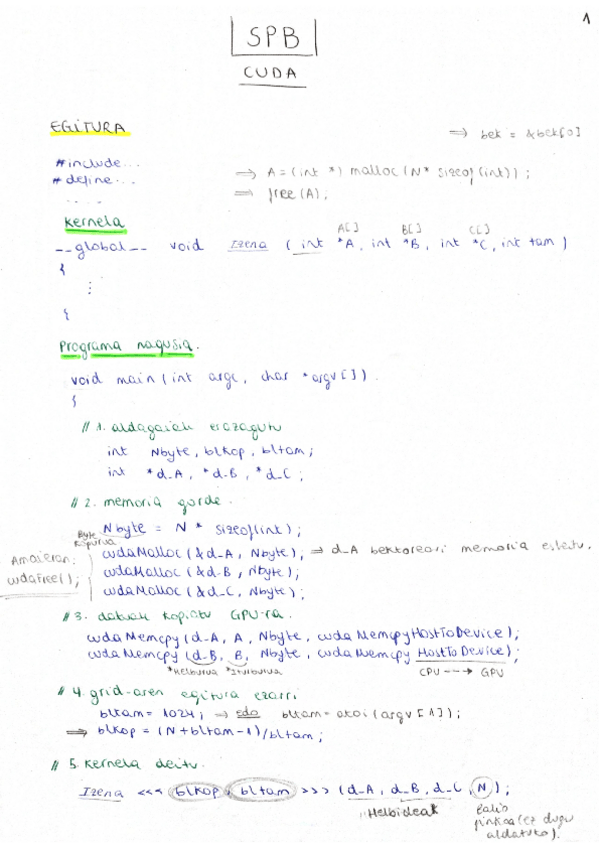 1
SPB
CUDA
EGITURA
⇒ bek = &bek[0]
#include...
#define...
....
⇒ A = (int *) malloc (N * sizeof(int));
⇒ free(A);
Kernela
A[] B[] C[]
__global__ void Izena (int *A, int *B, int *C, int tam)
{
⋮
}
Programa nagusia.
void main (int argc, char *argv[])
{
// 1. aldagaiak ezagutu
int Nbyte, blkop, bltam;
int *d_A, *d_B, *d_C;
// 2. memoria gorde.
Nbyte = N * sizeof(int);
Byte kopurua
cudaMalloc (&d_A, Nbyte); ⇒ d_A bektoreari memoria esleitu.
cudaMalloc (&d_B, Nbyte);
cudaMalloc (&d_C, Nbyte);
Amaieran:
cudaFree();
// 3. datuak kopiatu GPU-ra.
cudaMemcpy (d_A, A, Nbyte, cudaMemcpyHostToDevice);
cudaMemcpy (d_B, B, Nbyte, cudaMemcpy HostToDevice);
*Helburua *Iturburua CPU ---> GPU
// 4. grid-aren egitura ezarri
bltam = 1024; ⇒ edo bltam = atoi (argv[1]);
⇒ blkop = (N+bltam-1)/bltam;
// 5. Kernela deitu.
Izena <<< blkop, bltam >>> (d_A, d_B, d_C, N);
Helbideak
balio
finkoa (ez dugu
aldatuko).